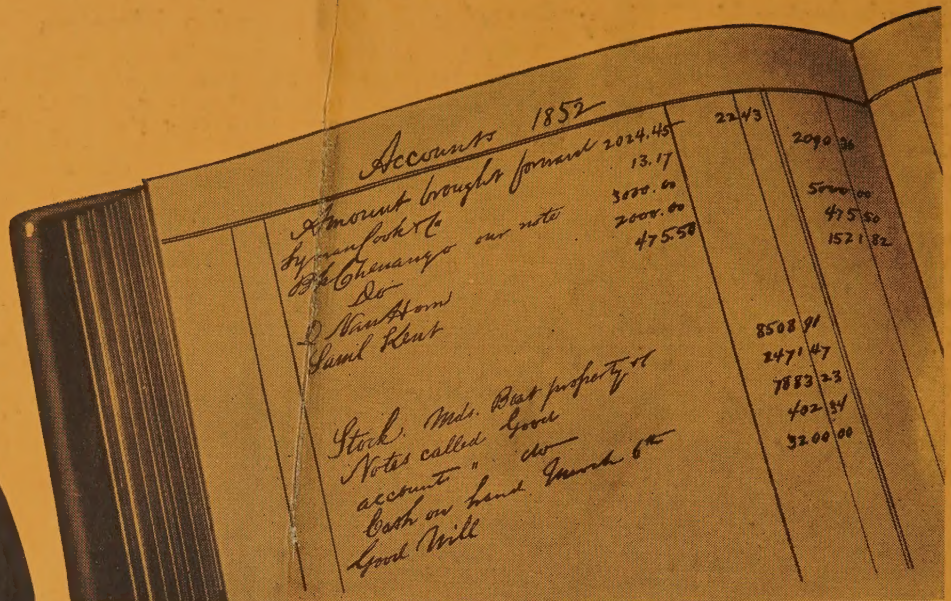 Accounts 1852
Amount brought forward 2024.45 22 43 2090 36
Lyman Cook & Co 13.17
Bk Chenango our note 3000.00 5000 00
Do 2000.00 475 50
D VanHorn 475.50 1521 82
Saml Kent
Stock. Mds. Boat property &c 8508 91
Notes called Good 2471 47
account " do 7883 23
Cash on hand March 6th 402 34
Good Will 3200 00